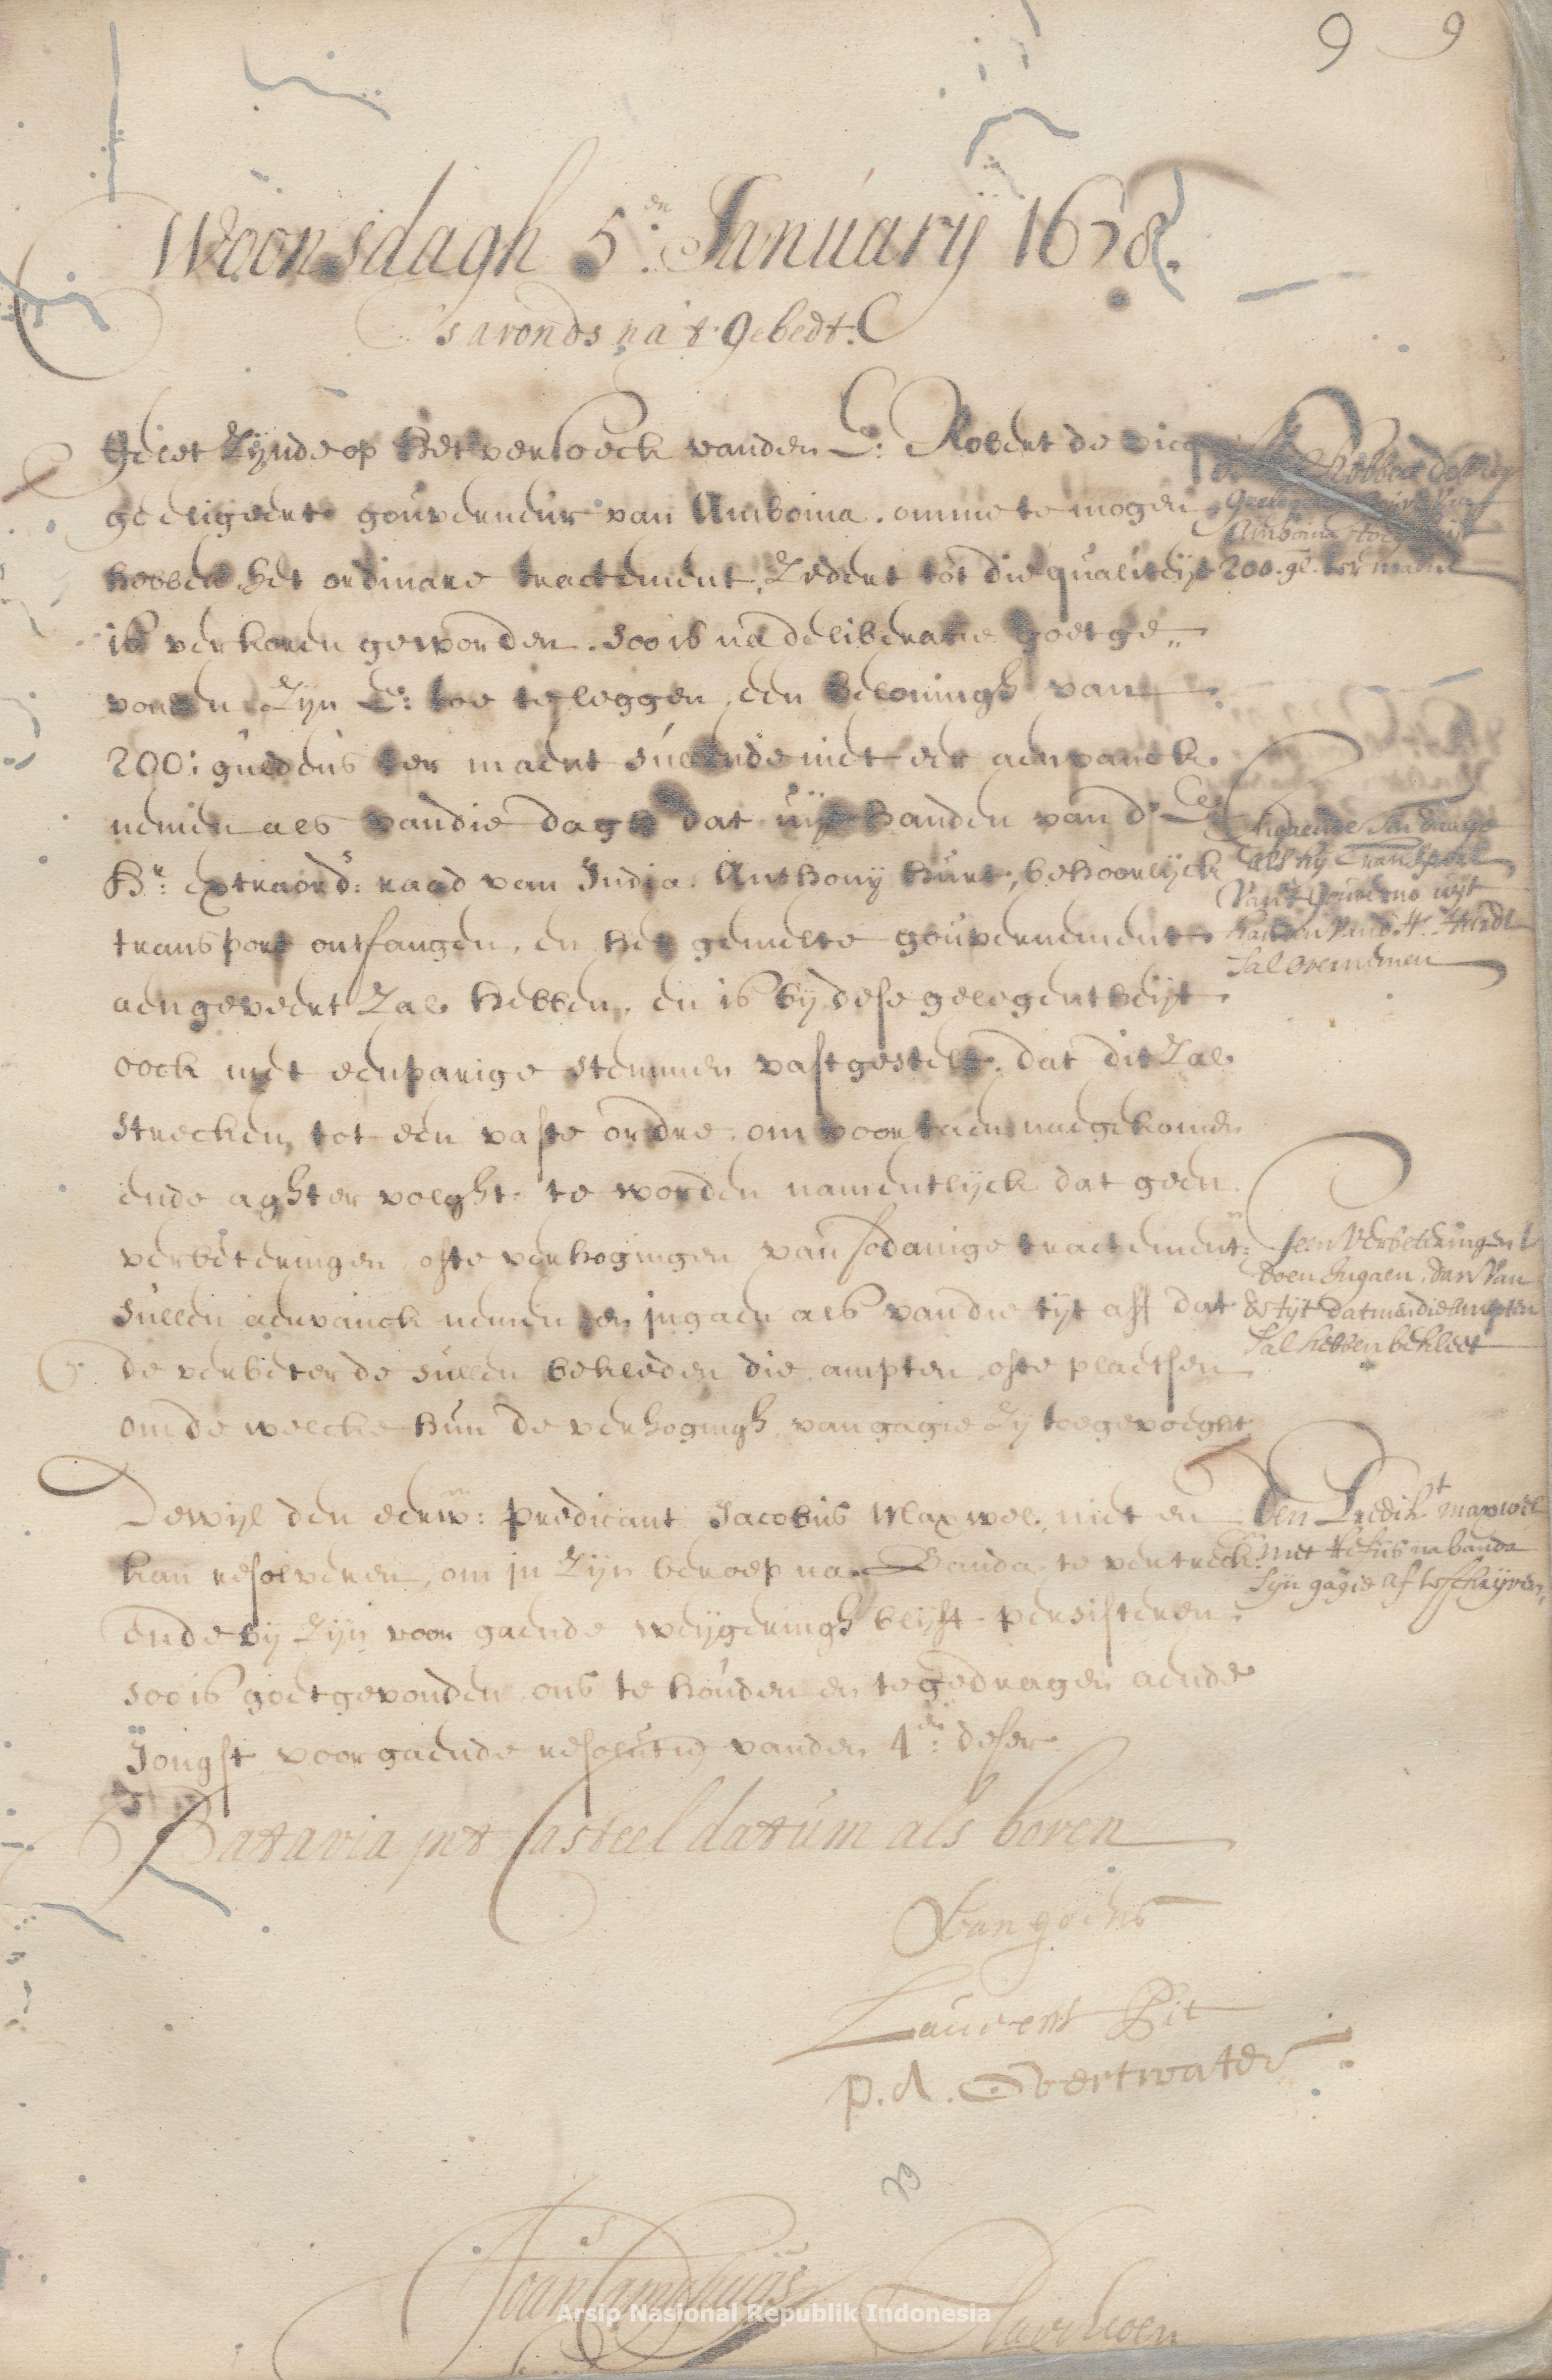 9 9
Woonsdagh 5:en January 1678.
s avonds na 't gebedt.
Gelet zijnde op het versoeck vanden E: Robert de vicq
geeligeert gouverneur van Amboina. omme te mogen
hebben het ordinare tractement, zedert tot die qualiteijt
is verkoren geworden. soo is na deliberatie goetge„
vonden zijn E: toe te leggen, een beloningh van
200: guldens ter maent sullende niet eer aenvanck
nemen als van die dagh dat uijt handen van d' E:
Hr: extraords: raad van India. Anthonij Hurt, behoorlijck
transport ontfangen, en het gemelte gouvernement
aengeveert zal hebben, en is bij dese gelegentheijt
oock met eenparige stemmen vastgestelt. dat dit zal
strecken, tot een vaste ordre. om voortaen naegekomen
ende aghtervolght. te worden namentlijck dat geen
verbeteringen ofte verhogingen van sodanige tractementn:
sullen aenvanck nemen en jngaen als van die tijt aff dat
de verbeterde sullen bekleden die ampten ofte plaetsen
om de welcke hun de verhogingh van gagie zij toegevoeght
Dewijl den eerw: predicant Jacobus Maxwel, niet en
kan resolveren, om jn zijn beroep na Banda te vertreck:
ende bij zijn voor gaende weijgeringh blijft persisteren.
soo is goetgevonden, ons te houden en te gedragen aende
Jongst voorgaende resolutie vanden 4:en deser.
Batavia jnt Casteel datum als boven
Robbert de vicq
Amboina
200. gl. ter maent
als hij transport
van 't gouverno uijt
handen van d' Hr. Hurdt
sal overnemen
geen verbeteringen te
doen Ingaen, dan van
de tijt datmen die ampten
sal hebben bekleet
Den Predikt maxwel
met refuijs na banda
sijn gagie af te schrijven,
Van goens
Laurens Pit
P. A. Overtwater
Joans Camphuijs
Arsip Nasional Republik Indonesia